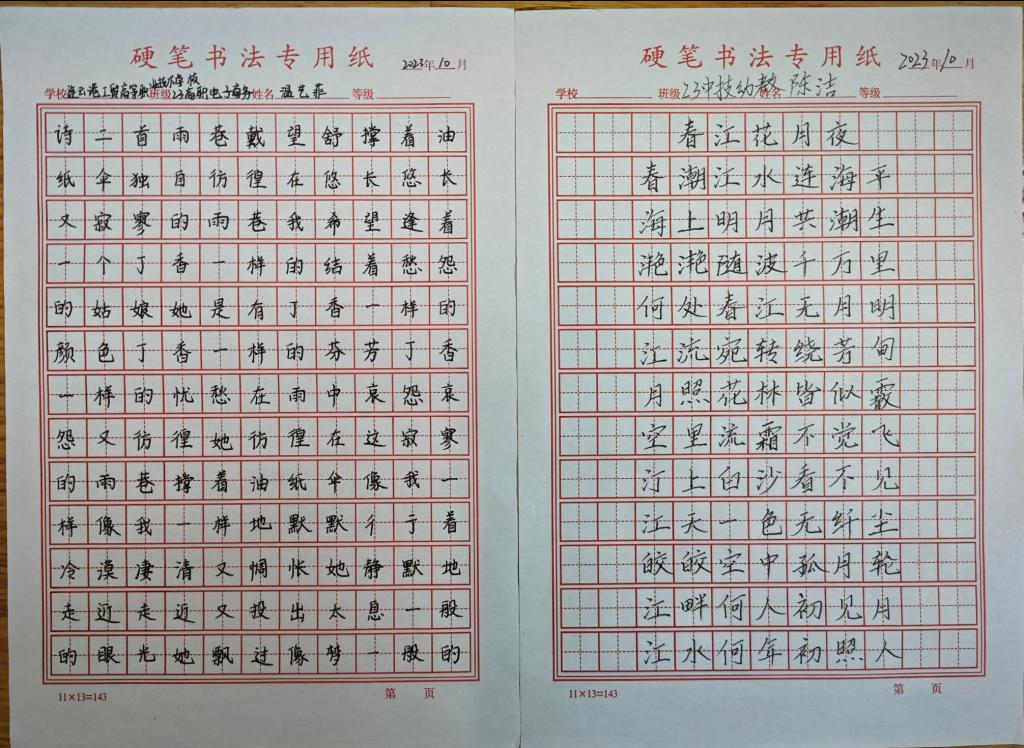 硬笔书法专用纸
2023年10月
学校 连云港工贸高等职业技术学校 班级 23高职电子商务 姓名 温艺菲 等级
诗二首雨巷戴望舒撑着油
纸伞独自彷徨在悠长悠长
又寂寥的雨巷我希望逢着
一个丁香一样的结着愁怨
的姑娘她是有丁香一样的
颜色丁香一样的芬芳丁香
一样的忧愁在雨中哀怨哀
怨又彷徨她彷徨在这寂寥
的雨巷撑着油纸伞像我一
样像我一样地默默彳亍着
冷漠凄清又惆怅她静默地
走近走近又投出太息一般
的眼光她飘过像梦一般的
11×13=143
第 页
硬笔书法专用纸
2023年10月
学校 班级 23中技幼教 姓名 陈洁 等级
春江花月夜
春潮江水连海平
海上明月共潮生
滟滟随波千万里
何处春江无月明
江流宛转绕芳甸
月照花林皆似霰
空里流霜不觉飞
汀上白沙看不见
江天一色无纤尘
皎皎空中孤月轮
江畔何人初见月
江水何年初照人
11×13=143
第 页